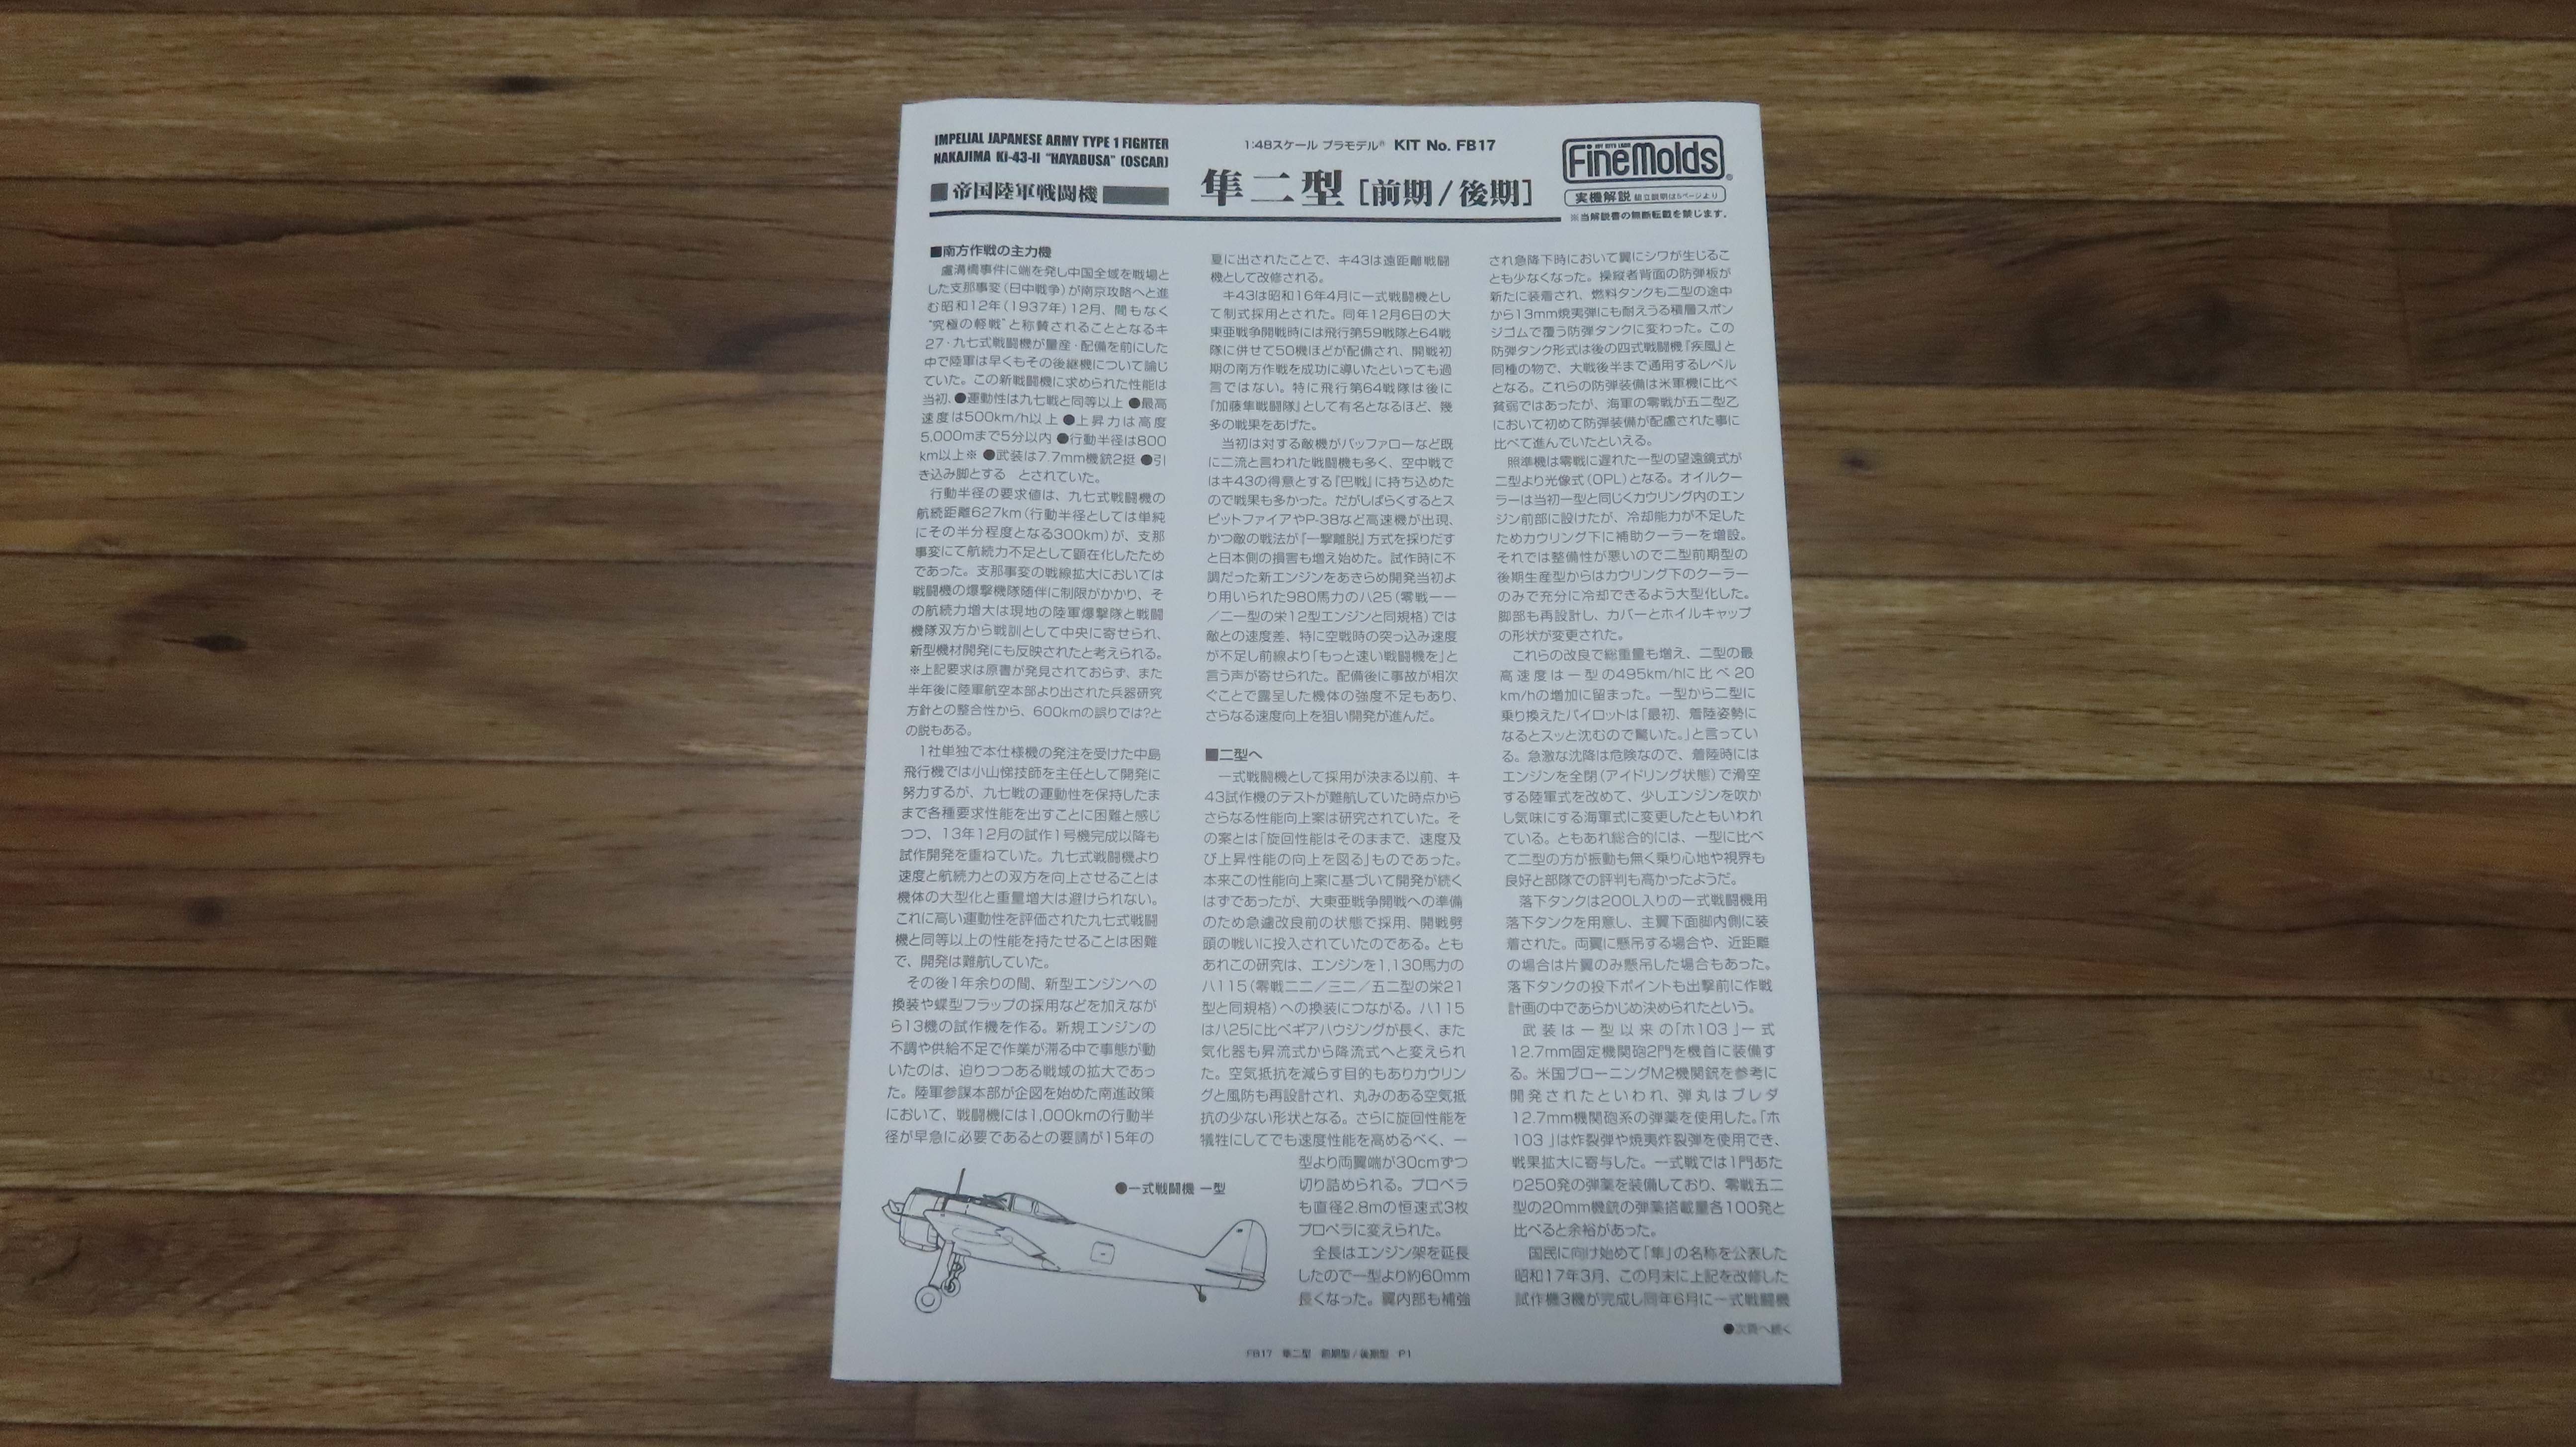 IMPELIAL JAPANESE ARMY TYPE 1 FIGHTER
NAKAJIMA Ki-43-II "HAYABUSA" (OSCAR)
帝国陸軍戦闘機
1:48スケール プラモデル® KIT No. FB17
隼二型[前期/後期]
FineMolds
実機解説 組立説明は5ページより
※当解説書の無断転載を禁じます。
■南方作戦の主力機
盧溝橋事件に端を発し中国全域を戦場と
した支那事変(日中戦争)が南京攻略へと進
む昭和12年(1937年)12月、間もなく
"究極の軽戦"と称賛されることとなるキ
27・九七式戦闘機が量産・配備を前にした
中で陸軍は早くもその後継機について論じ
ていた。この新戦闘機に求められた性能は
当初、●運動性は九七戦と同等以上 ●最高
速度は500km/h以上 ●上昇力は高度
5,000mまで5分以内 ●行動半径は800
km以上※ ●武装は7.7mm機銃2挺 ●引
き込み脚とする とされていた。
行動半径の要求値は、九七式戦闘機の
航続距離627km(行動半径としては単純
にその半分程度となる300km)が、支那
事変にて航続力不足として顕在化したため
であった。支那事変の戦線拡大においては
戦闘機の爆撃機隊随伴に制限がかかり、そ
の航続力増大は現地の陸軍爆撃隊と戦闘
機隊双方から戦訓として中央に寄せられ、
新型機材開発にも反映されたと考えられる。
※上記要求は原書が発見されておらず、また
半年後に陸軍航空本部より出された兵器研究
方針との整合性から、600kmの誤りでは?と
の説もある。
1社単独で本仕様機の発注を受けた中島
飛行機では小山悌技師を主任として開発に
努力するが、九七戦の運動性を保持したま
まで各種要求性能を出すことに困難と感じ
つつ、13年12月の試作1号機完成以降も
試作開発を重ねていた。九七式戦闘機より
速度と航続力との双方を向上させることは
機体の大型化と重量増大は避けられない。
これに高い運動性を評価された九七式戦闘
機と同等以上の性能を持たせることは困難
で、開発は難航していた。
その後1年余りの間、新型エンジンへの
換装や蝶型フラップの採用などを加えなが
ら13機の試作機を作る。新規エンジンの
不調や供給不足で作業が滞る中で事態が動
いたのは、迫りつつある戦域の拡大であっ
た。陸軍参謀本部が企図を始めた南進政策
において、戦闘機には1,000kmの行動半
径が早急に必要であるとの要請が15年の
●一式戦闘機 一型
夏に出されたことで、キ43は遠距離戦闘
機として改修される。
キ43は昭和16年4月に一式戦闘機とし
て制式採用とされた。同年12月6日の大
東亜戦争開戦時には飛行第59戦隊と64戦
隊に併せて50機ほどが配備され、開戦初
期の南方作戦を成功に導いたといっても過
言ではない。特に飛行第64戦隊は後に
『加藤隼戦闘隊』として有名となるほど、幾
多の戦果をあげた。
当初は対する敵機がバッファローなど既
に二流と言われた戦闘機も多く、空中戦で
はキ43の得意とする『巴戦』に持ち込めた
ので戦果も多かった。だがしばらくするとス
ピットファイアやP-38など高速機が出現、
かつ敵の戦法が『一撃離脱』方式を採りだす
と日本側の損害も増え始めた。試作時に不
調だった新エンジンをあきらめ開発当初よ
り用いられた980馬力のハ25(零戦一一
/二一型の栄12型エンジンと同規格)では
敵との速度差、特に空戦時の突っ込み速度
が不足し前線より「もっと速い戦闘機を」と
言う声が寄せられた。配備後に事故が相次
ぐことで露呈した機体の強度不足もあり、
さらなる速度向上を狙い開発が進んだ。
■二型へ
一式戦闘機として採用が決まる以前、キ
43試作機のテストが難航していた時点から
さらなる性能向上案は研究されていた。そ
の案とは「旋回性能はそのままで、速度及
び上昇性能の向上を図る」ものであった。
本来この性能向上案に基づいて開発が続く
はずであったが、大東亜戦争開戦への準備
のため急遽改良前の状態で採用、開戦劈
頭の戦いに投入されていたのである。とも
あれこの研究は、エンジンを1,130馬力の
ハ115(零戦二二/三二/五二型の栄21
型と同規格)への換装につながる。ハ115
はハ25に比べギアハウジングが長く、また
気化器も昇流式から降流式へと変えられ
た。空気抵抗を減らす目的もありカウリン
グと風防も再設計され、丸みのある空気抵
抗の少ない形状となる。さらに旋回性能を
犠牲にしてでも速度性能を高めるべく、一
型より両翼端が30cmずつ
切り詰められる。プロペラ
も直径2.8mの恒速式3枚
プロペラに変えられた。
全長はエンジン架を延長
したので一型より約60mm
長くなった。翼内部も補強
され急降下時において翼にシワが生じるこ
とも少なくなった。操縦者背面の防弾板が
新たに装着され、燃料タンクも二型の途中
から13mm焼夷弾にも耐えうる積層スポン
ジゴムで覆う防弾タンクに変わった。この
防弾タンク形式は後の四式戦闘機『疾風』と
同種の物で、大戦後半まで通用するレベル
となる。これらの防弾装備は米軍機に比べ
貧弱ではあったが、海軍の零戦が五二型乙
において初めて防弾装備が配慮された事に
比べて進んでいたといえる。
照準機は零戦に遅れた一型の望遠鏡式が
二型より光像式(OPL)となる。オイルクー
ラーは当初一型と同じくカウリング内のエン
ジン前部に設けたが、冷却能力が不足した
ためカウリング下に補助クーラーを増設。
それでは整備性が悪いので二型前期型の
後期生産型からはカウリング下のクーラー
のみで充分に冷却できるよう大型化した。
脚部も再設計し、カバーとホイルキャップ
の形状が変更された。
これらの改良で総重量も増え、二型の最
高速度は一型の495km/hに比べ20
km/hの増加に留まった。一型から二型に
乗り換えたパイロットは「最初、着陸姿勢に
なるとスッと沈むので驚いた。」と言ってい
る。急激な沈降は危険なので、着陸時には
エンジンを全閉(アイドリング状態)で滑空
する陸軍式を改めて、少しエンジンを吹か
し気味にする海軍式に変更したともいわれ
ている。ともあれ総合的には、一型に比べ
て二型の方が振動も無く乗り心地や視界も
良好と部隊での評判も高かったようだ。
落下タンクは200L入りの一式戦闘機用
落下タンクを用意し、主翼下面脚内側に装
着された。両翼に懸吊する場合や、近距離
の場合は片翼のみ懸吊した場合もあった。
落下タンクの投下ポイントも出撃前に作戦
計画の中であらかじめ決められたという。
武装は一型以来の「ホ103」一式
12.7mm固定機関砲2門を機首に装備す
る。米国ブローニングM2機関銃を参考に
開発されたといわれ、弾丸はブレダ
12.7mm機関砲系の弾薬を使用した。「ホ
103」は炸裂弾や焼夷炸裂弾を使用でき、
戦果拡大に寄与した。一式戦では1門あた
り250発の弾薬を装備しており、零戦五二
型の20mm機銃の弾薬搭載量各100発と
比べると余裕があった。
国民に向け始めて「隼」の名称を公表した
昭和17年3月、この月末に上記を改修した
試作機3機が完成し同年6月に一式戦闘機
●次頁へ続く
FB17 隼二型 前期型/後期型 P1